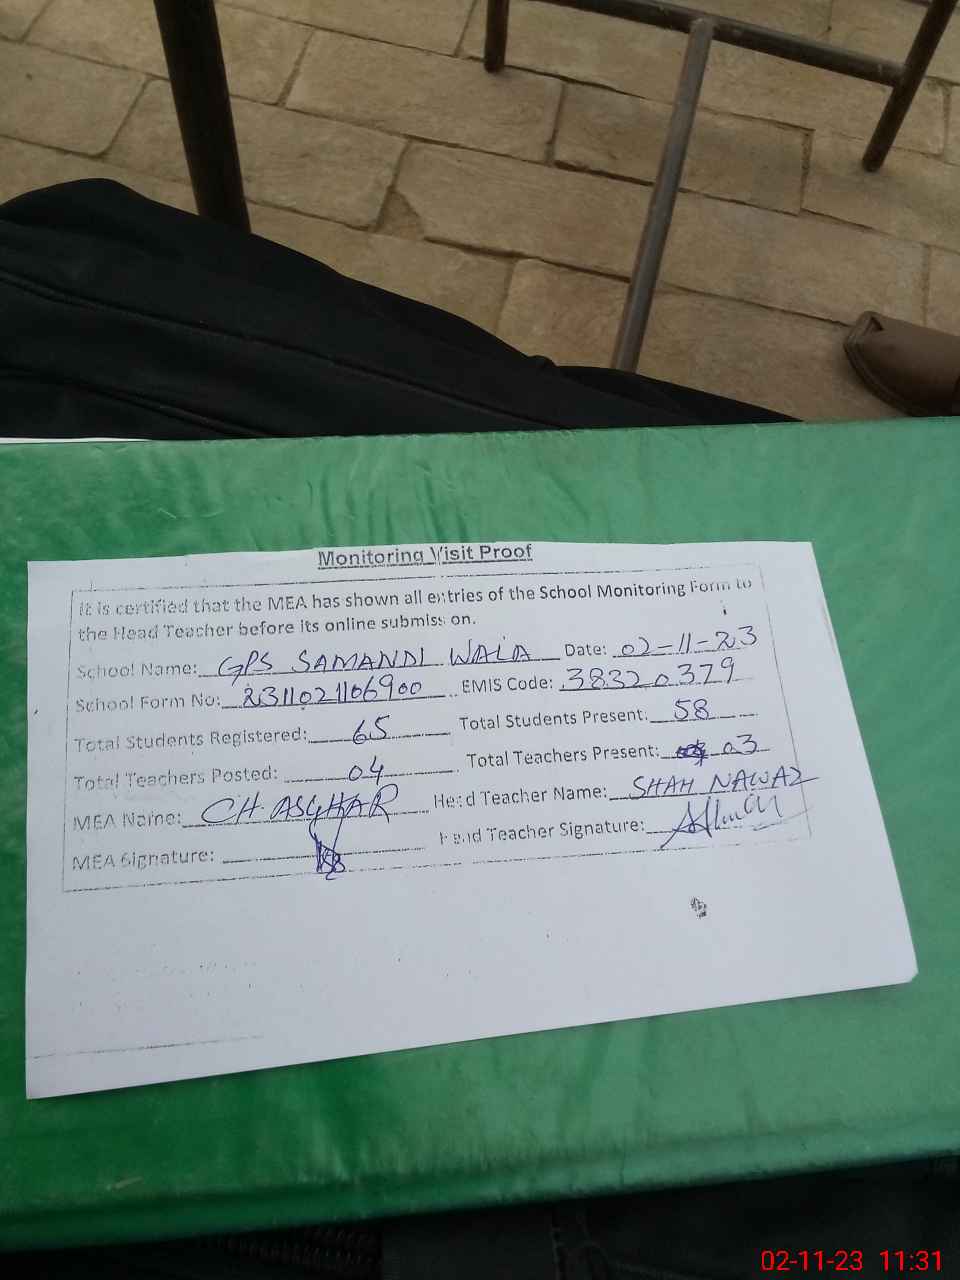 Monitoring Visit Proof
It is certified that the MEA has shown all entries of the School Monitoring Form to
the Head Teacher before its online submission.
School Name: GPS SAMANDI WALA Date: 02-11-23
School Form No: 2311021106900 EMIS Code: 38320379
Total Students Registered: 65 Total Students Present: 58
Total Teachers Posted: 04 Total Teachers Present: 03
MEA Name: CH. ASGHAR Head Teacher Name: SHAH NAWAZ
MEA Signature: Head Teacher Signature:
02-11-23 11:31